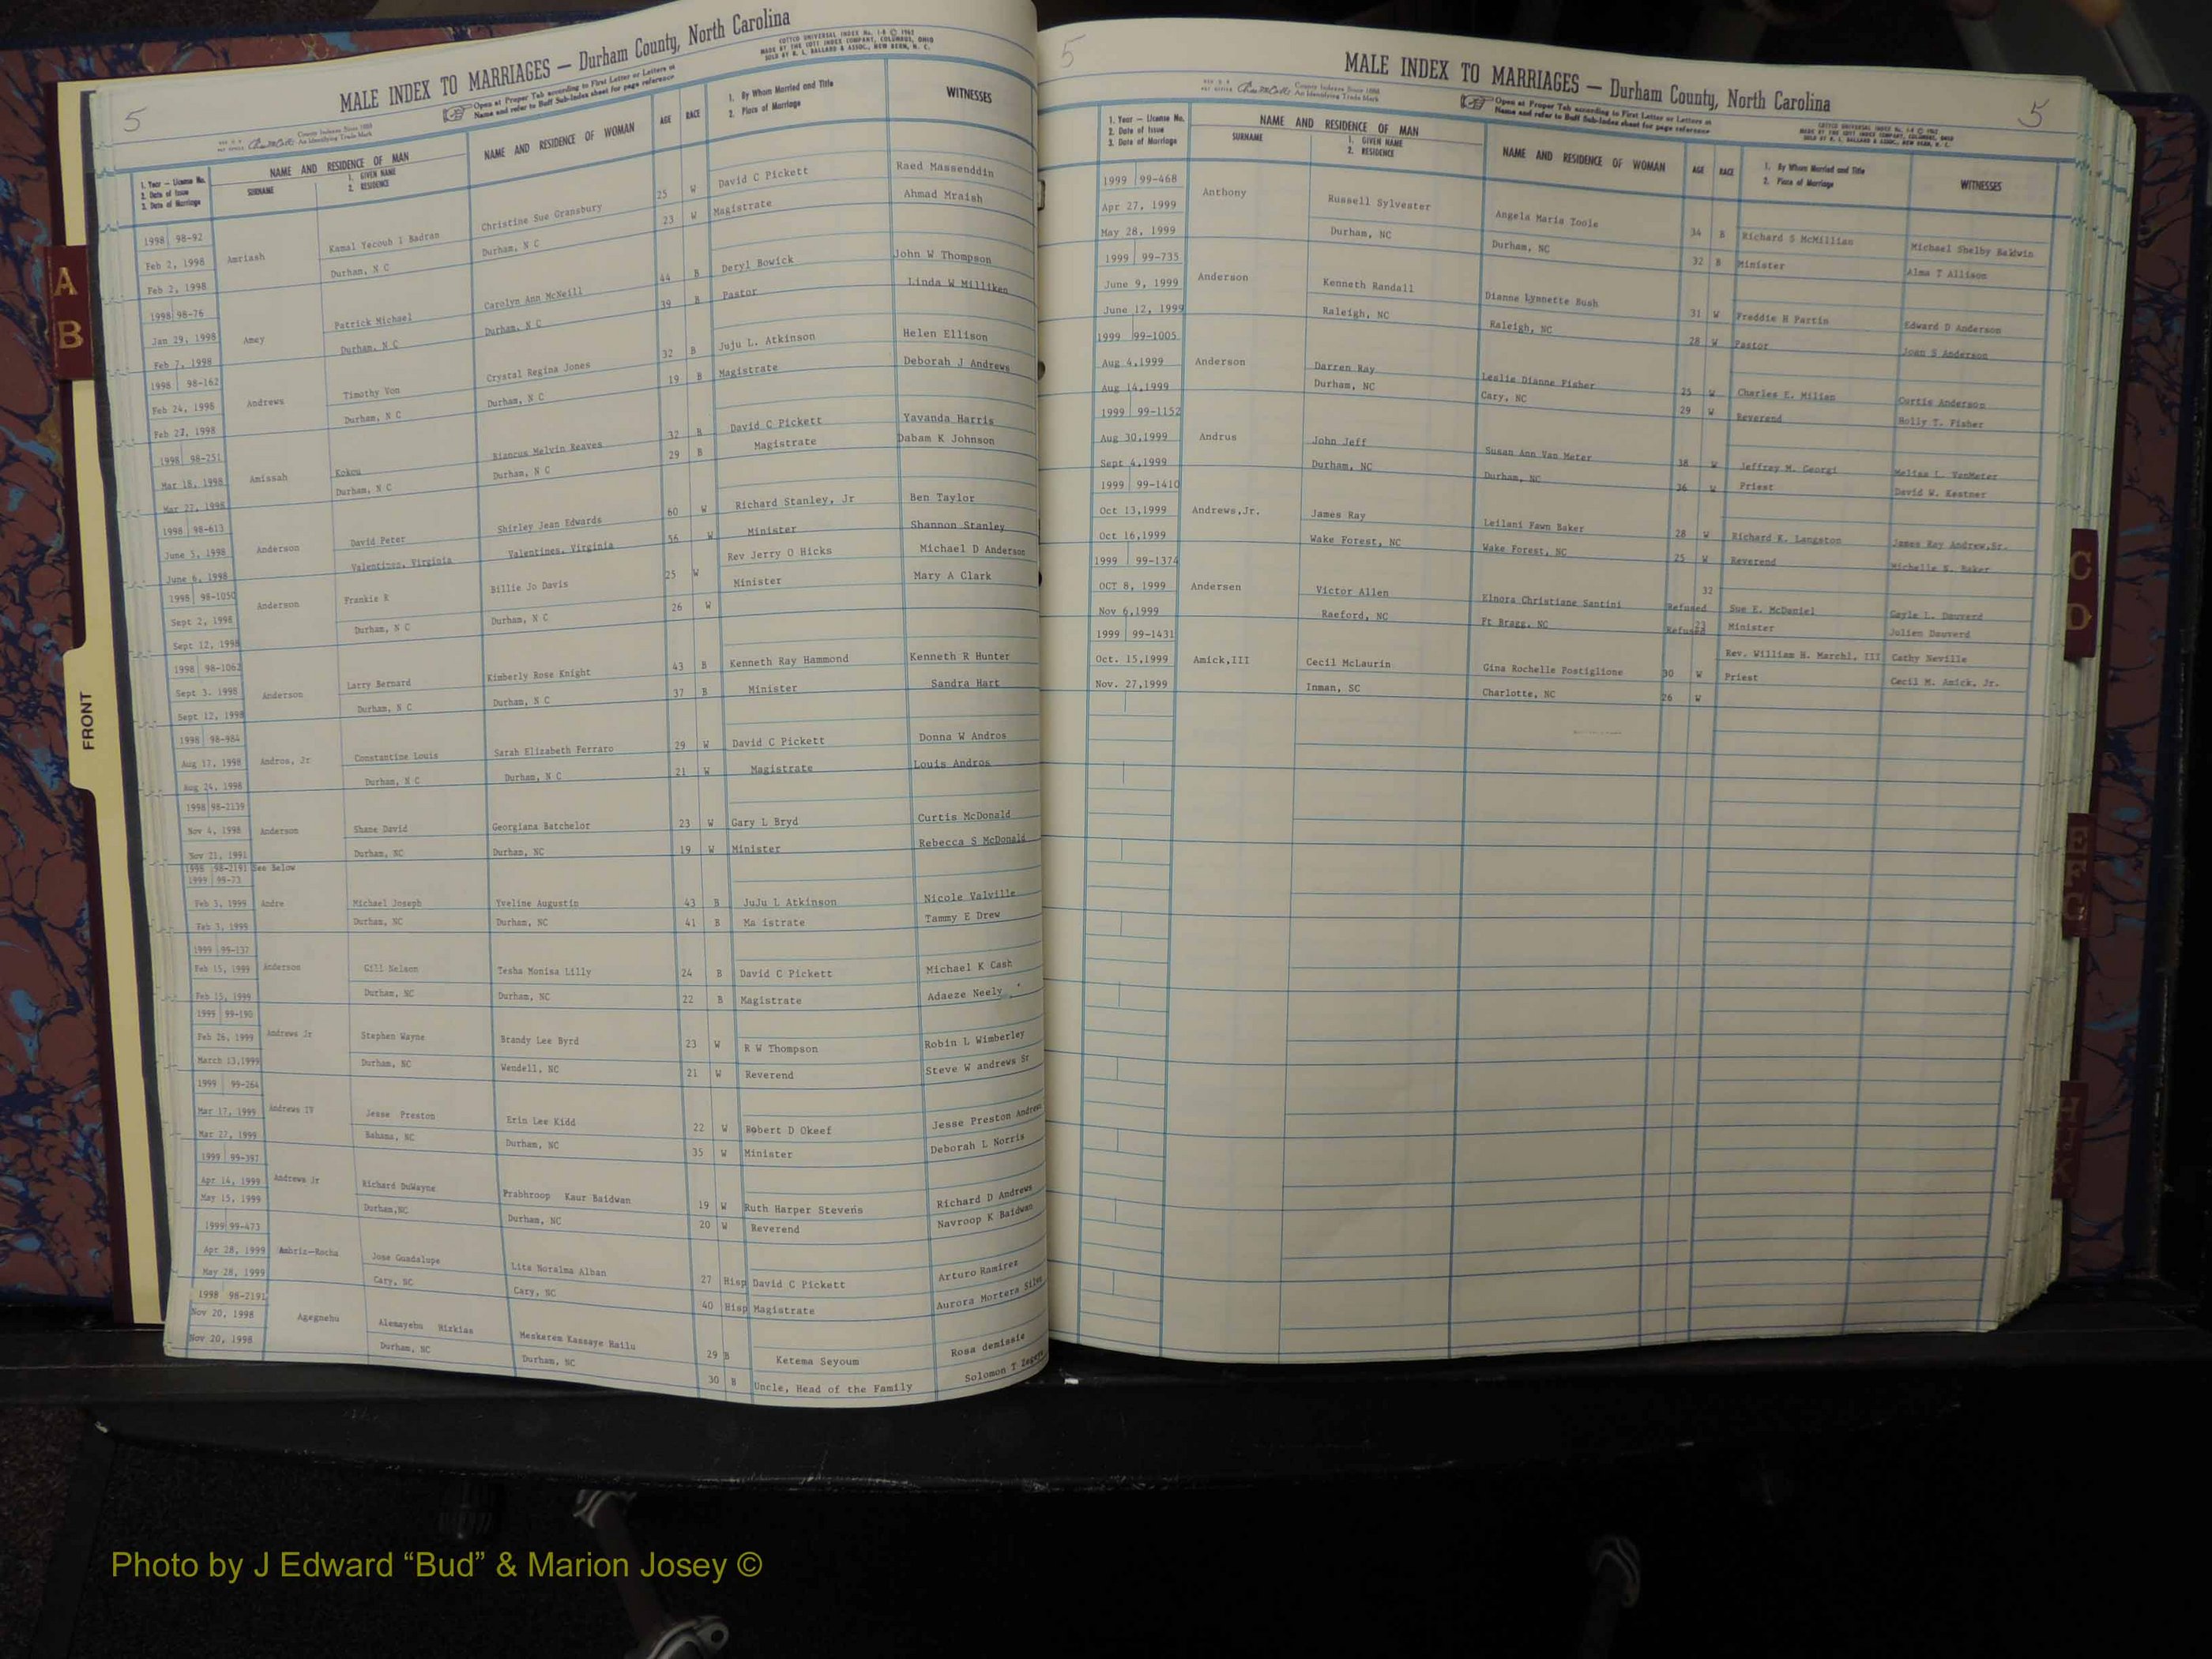 5
MALE INDEX TO MARRIAGES — Durham County, North Carolina
COTTCO UNIVERSAL INDEX No. 1-8 © 1962
MADE BY THE COTT INDEX COMPANY, COLUMBUS, OHIO
SOLD BY R. L. BALLARD & ASSOC., NEW BERN, N. C.
Open at Proper Tab according to First Letter or Letters of
Name and refer to Buff Sub-Index sheet for page reference
County Indexes Since 1888
An Identifying Trade Mark
1. Year — License No. 2. Date of Issue 3. Date of Marriage
NAME AND RESIDENCE OF MAN
SURNAME 1. GIVEN NAME 2. RESIDENCE
NAME AND RESIDENCE OF WOMAN
AGE RACE
1. By Whom Married and Title 2. Place of Marriage
WITNESSES
1998 98-92 Christine Sue Gransbury 25 W David C Pickett Raed Massenddin
Feb 2, 1998 Amriash Kamal Yecoub I Badran Durham, N C 23 W Magistrate Ahmad Mraish
Feb 2, 1998 Durham, N C
1998 98-76 Carolyn Ann McNeill 44 B Deryl Bowick John W Thompson
Jan 29, 1998 Amey Patrick Michael Durham, N C 39 B Pastor Linda W Milliken
Feb 7, 1998 Durham, N C
1998 98-162 Crystal Regina Jones 32 B Juju L. Atkinson Helen Ellison
Feb 24, 1998 Andrews Timothy Von Durham, N C 19 B Magistrate Deborah J Andrews
Feb 27, 1998 Durham, N C
1998 98-251 Biancus Melvin Reaves 32 B David C Pickett Yavanda Harris
Mar 18, 1998 Amissah Kokou Durham, N C 29 B Magistrate Dabam K Johnson
Mar 27, 1998 Durham, N C
1998 98-613 Shirley Jean Edwards 60 W Richard Stanley, Jr Ben Taylor
June 5, 1998 Anderson David Peter Valentines, Virginia 56 W Minister Shannon Stanley
June 6, 1998 Valentines, Virginia
1998 98-1050 Frankie R Billie Jo Davis 25 W Rev Jerry O Hicks Michael D Anderson
Sept 2, 1998 Anderson Durham, N C Durham, N C 26 W Minister Mary A Clark
Sept 12, 1998
1998 98-1062 Kimberly Rose Knight 43 B Kenneth Ray Hammond Kenneth R Hunter
Sept 3, 1998 Anderson Larry Bernard Durham, N C 37 B Minister Sandra Hart
Sept 12, 1998 Durham, N C
1998 98-984 Sarah Elizabeth Ferraro 29 W David C Pickett Donna W Andros
Aug 17, 1998 Andros, Jr Constantine Louis Durham, N C 21 W Magistrate Louis Andros
Aug 24, 1998 Durham, N C
1998 98-2139
Nov 4, 1998 Anderson Shane David Georgiana Batchelor 23 W Gary L Bryd Curtis McDonald
Nov 21, 1991 Durham, NC Durham, NC 19 W Minister Rebecca S McDonald
1998 98-2191 See Below
1999 99-73
Feb 3, 1999 Andre Michael Joseph Yveline Augustin 43 B JuJu L Atkinson Nicole Valville
Feb 3, 1999 Durham, NC Durham, NC 41 B Ma istrate Tammy E Drew
1999 99-137
Feb 15, 1999 Anderson Gill Nelson Tesha Monisa Lilly 24 B David C Pickett Michael K Cash
Feb 15, 1999 Durham, NC Durham, NC 22 B Magistrate Adaeze Neely
1999 99-190
Feb 26, 1999 Andrews Jr Stephen Wayne Brandy Lee Byrd 23 W R W Thompson Robin L Wimberley
March 13,1999 Durham, NC Wendell, NC 21 W Reverend Steve W andrews Sr
1999 99-264
Mar 17, 1999 Andrews IV Jesse Preston Erin Lee Kidd 22 W Robert D Okeef Jesse Preston Andrews
Mar 27, 1999 Bahama, NC Durham, NC 35 W Minister Deborah L Norris
1999 99-397
Apr 14, 1999 Andrews Jr Richard DuWayne Prabhroop Kaur Baidwan 19 W Ruth Harper Stevens Richard D Andrews
May 15, 1999 Durham,NC Durham, NC 20 W Reverend Navroop K Baidwan
1999 99-473
Apr 28, 1999 Ambriz-Rocha Jose Guadelupe Lita Noralma Alban 27 Hisp David C Pickett Arturo Ramirez
May 28, 1999 Cary, NC Cary, NC 40 Hisp Magistrate Aurora Mortera Silva
1998 98-2191
Nov 20, 1998 Agegnehu Alemayehu Hizkias Meskerem Kassaye Hailu 29 B Ketema Seyoum Rosa demissie
Nov 20, 1998 Durham, NC Durham, NC 30 B Uncle, Head of the Family Solomon T
5
MALE INDEX TO MARRIAGES — Durham County, North Carolina
5
County Indexes Since 1888
An Identifying Trade Mark
Open at Proper Tab according to First Letter or Letters of
Name and refer to Buff Sub-Index sheet for page reference
COTTCO UNIVERSAL INDEX No. 1-8 © 1962
MADE BY THE COTT INDEX COMPANY, COLUMBUS, OHIO
SOLD BY R. L. BALLARD & ASSOC., NEW BERN, N. C.
1. Year — License No. 2. Date of Issue 3. Date of Marriage
NAME AND RESIDENCE OF MAN
SURNAME 1. GIVEN NAME 2. RESIDENCE
NAME AND RESIDENCE OF WOMAN
AGE RACE
1. By Whom Married and Title 2. Place of Marriage
WITNESSES
1999 99-468
Apr 27, 1999 Anthony Russell Sylvester Angela Maria Toole 34 B Richard S McMillian Michael Shelby Baldwin
May 28, 1999 Durham, NC Durham, NC 32 B Minister Alma T Allison
1999 99-735
June 9, 1999 Anderson Kenneth Randall Dianne Lynnette Bush 31 W Freddie H Partin Edward D Anderson
June 12, 1999 Raleigh, NC Raleigh, NC 28 W Pastor Joan S Anderson
1999 99-1005
Aug 4,1999 Anderson Darren Ray Leslie Dianne Fisher 25 W Charles E. Milian Curtis Anderson
Aug 14,1999 Durham, NC Cary, NC 29 W Reverend Holly T. Fisher
1999 99-1152
Aug 30,1999 Andrus John Jeff Susan Ann Van Meter 38 W Jeffrey M. Georgi Melisa L. VanMeter
Sept 4,1999 Durham, NC Durham, NC 36 W Priest David W. Kestner
1999 99-1410
Oct 13,1999 Andrews,Jr. James Ray Leilani Fawn Baker 28 W Richard K. Langston James Ray Andrew,Sr.
Oct 16,1999 Wake Forest, NC Wake Forest, NC 25 W Reverend Michelle S. Baker
1999 99-1374
OCT 8, 1999 Andersen Victor Allen Elnora Christiane Santini 32 Refused Sue E. McDaniel Gayle L. Dauverd
Nov 6,1999 Raeford, NC Ft Bragg, NC 23 Refused Minister Julien Dauverd
1999 99-1431 Rev. William H. Marchl, III Cathy Neville
Oct. 15,1999 Amick,III Cecil McLaurin Gina Rochelle Postiglione 30 W Priest Cecil M. Amick, Jr.
Nov. 27,1999 Inman, SC Charlotte, NC 26 W
A
B
FRONT
C
D
E
F
G
H
Photo by J Edward “Bud” & Marion Josey ©